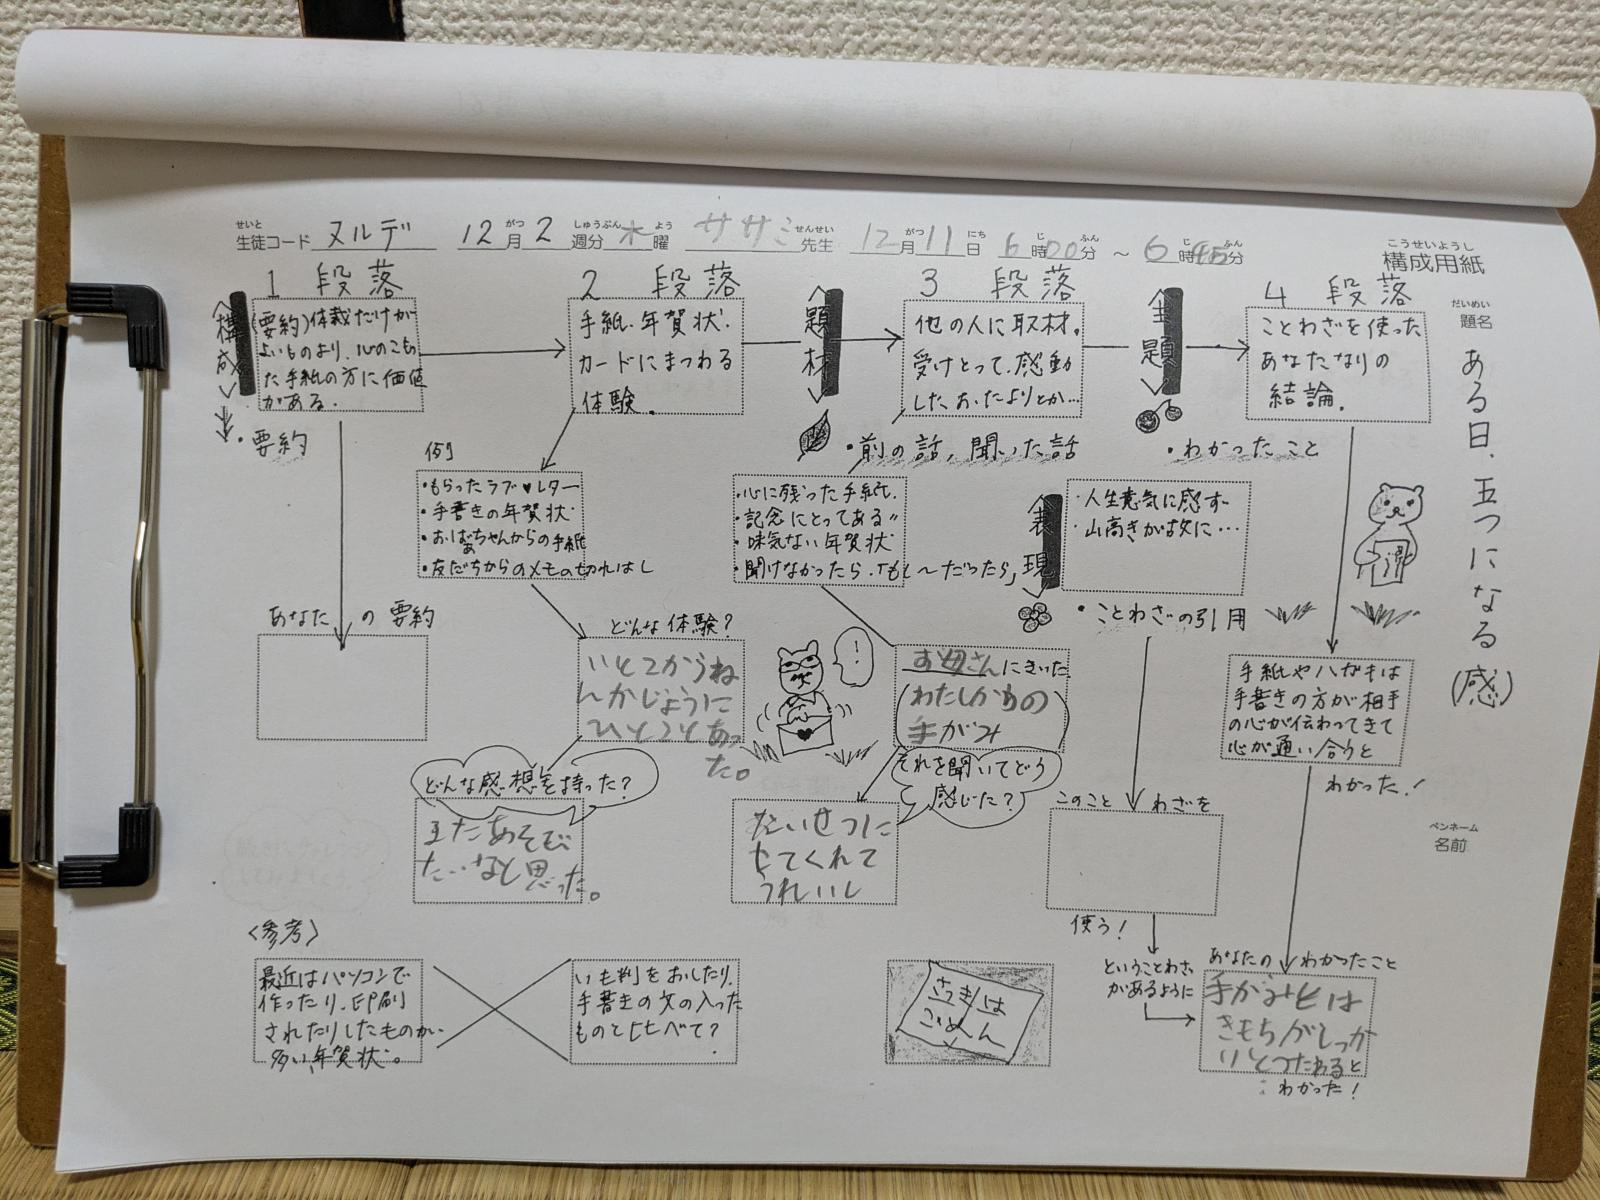 せいと がつ しゅうぶん よう せんせい がつ にち じ ふん じ ふん
生徒コード ヌルデ 12月2週分 木曜 ササミ先生 12月11日 6時00分 ～ 6時45分
こうせいようし
構成用紙
だいめい
題名
ある日、五つになる(感)
ペンネーム
名前
1 段落
〈構成〉
(要約)体裁だけが
よいものより、心のこもっ
た手紙の方に価値
がある。
・要約
あなたの要約
2 段落
手紙・年賀状・
カードにまつわる
体験。
例
・もらったラブ♥レター
・手書きの年賀状
・おばあちゃんからの手紙
・友だちからのメモの切れはし
どんな体験?
いとこからね
んがじょうに
ひとことあっ
た。
どんな感想を持った?
またあそび
たいなと思った。
〈題材〉
3 段落
他の人に取材。
受けとって、感動
した、おたよりとか…
・前の話, 聞いた話
・心に残った手紙。
・記念にとってある〃
・味気ない年賀状
・聞けなかったら、「もし～だったら」
お母さんにきいた
わたしからの
手がみ
!
それを聞いてどう
感じた?
たいせつに
してくれて
うれしい
〈主題〉
4 段落
ことわざを使った
あなたなりの
結論。
・わかったこと
〈表現〉
・人生意気に感ず
・山高きが故に…
・ことわざの引用
手紙やハガキは
手書きの方が相手
の心が伝わってきて
心が通い合うと
わかった!
このことわざを
使う!
ということわざ
があるように
あなたのわかったこと
手がみとは
きもちがしっか
りとつたわると
わかった!
〈参考〉
最近はパソコンで
作ったり、印刷
されたりしたものが
多い年賀状。
いも判をおしたり、
手書きの文の入った
ものと比べて?
さっきは
ごめん